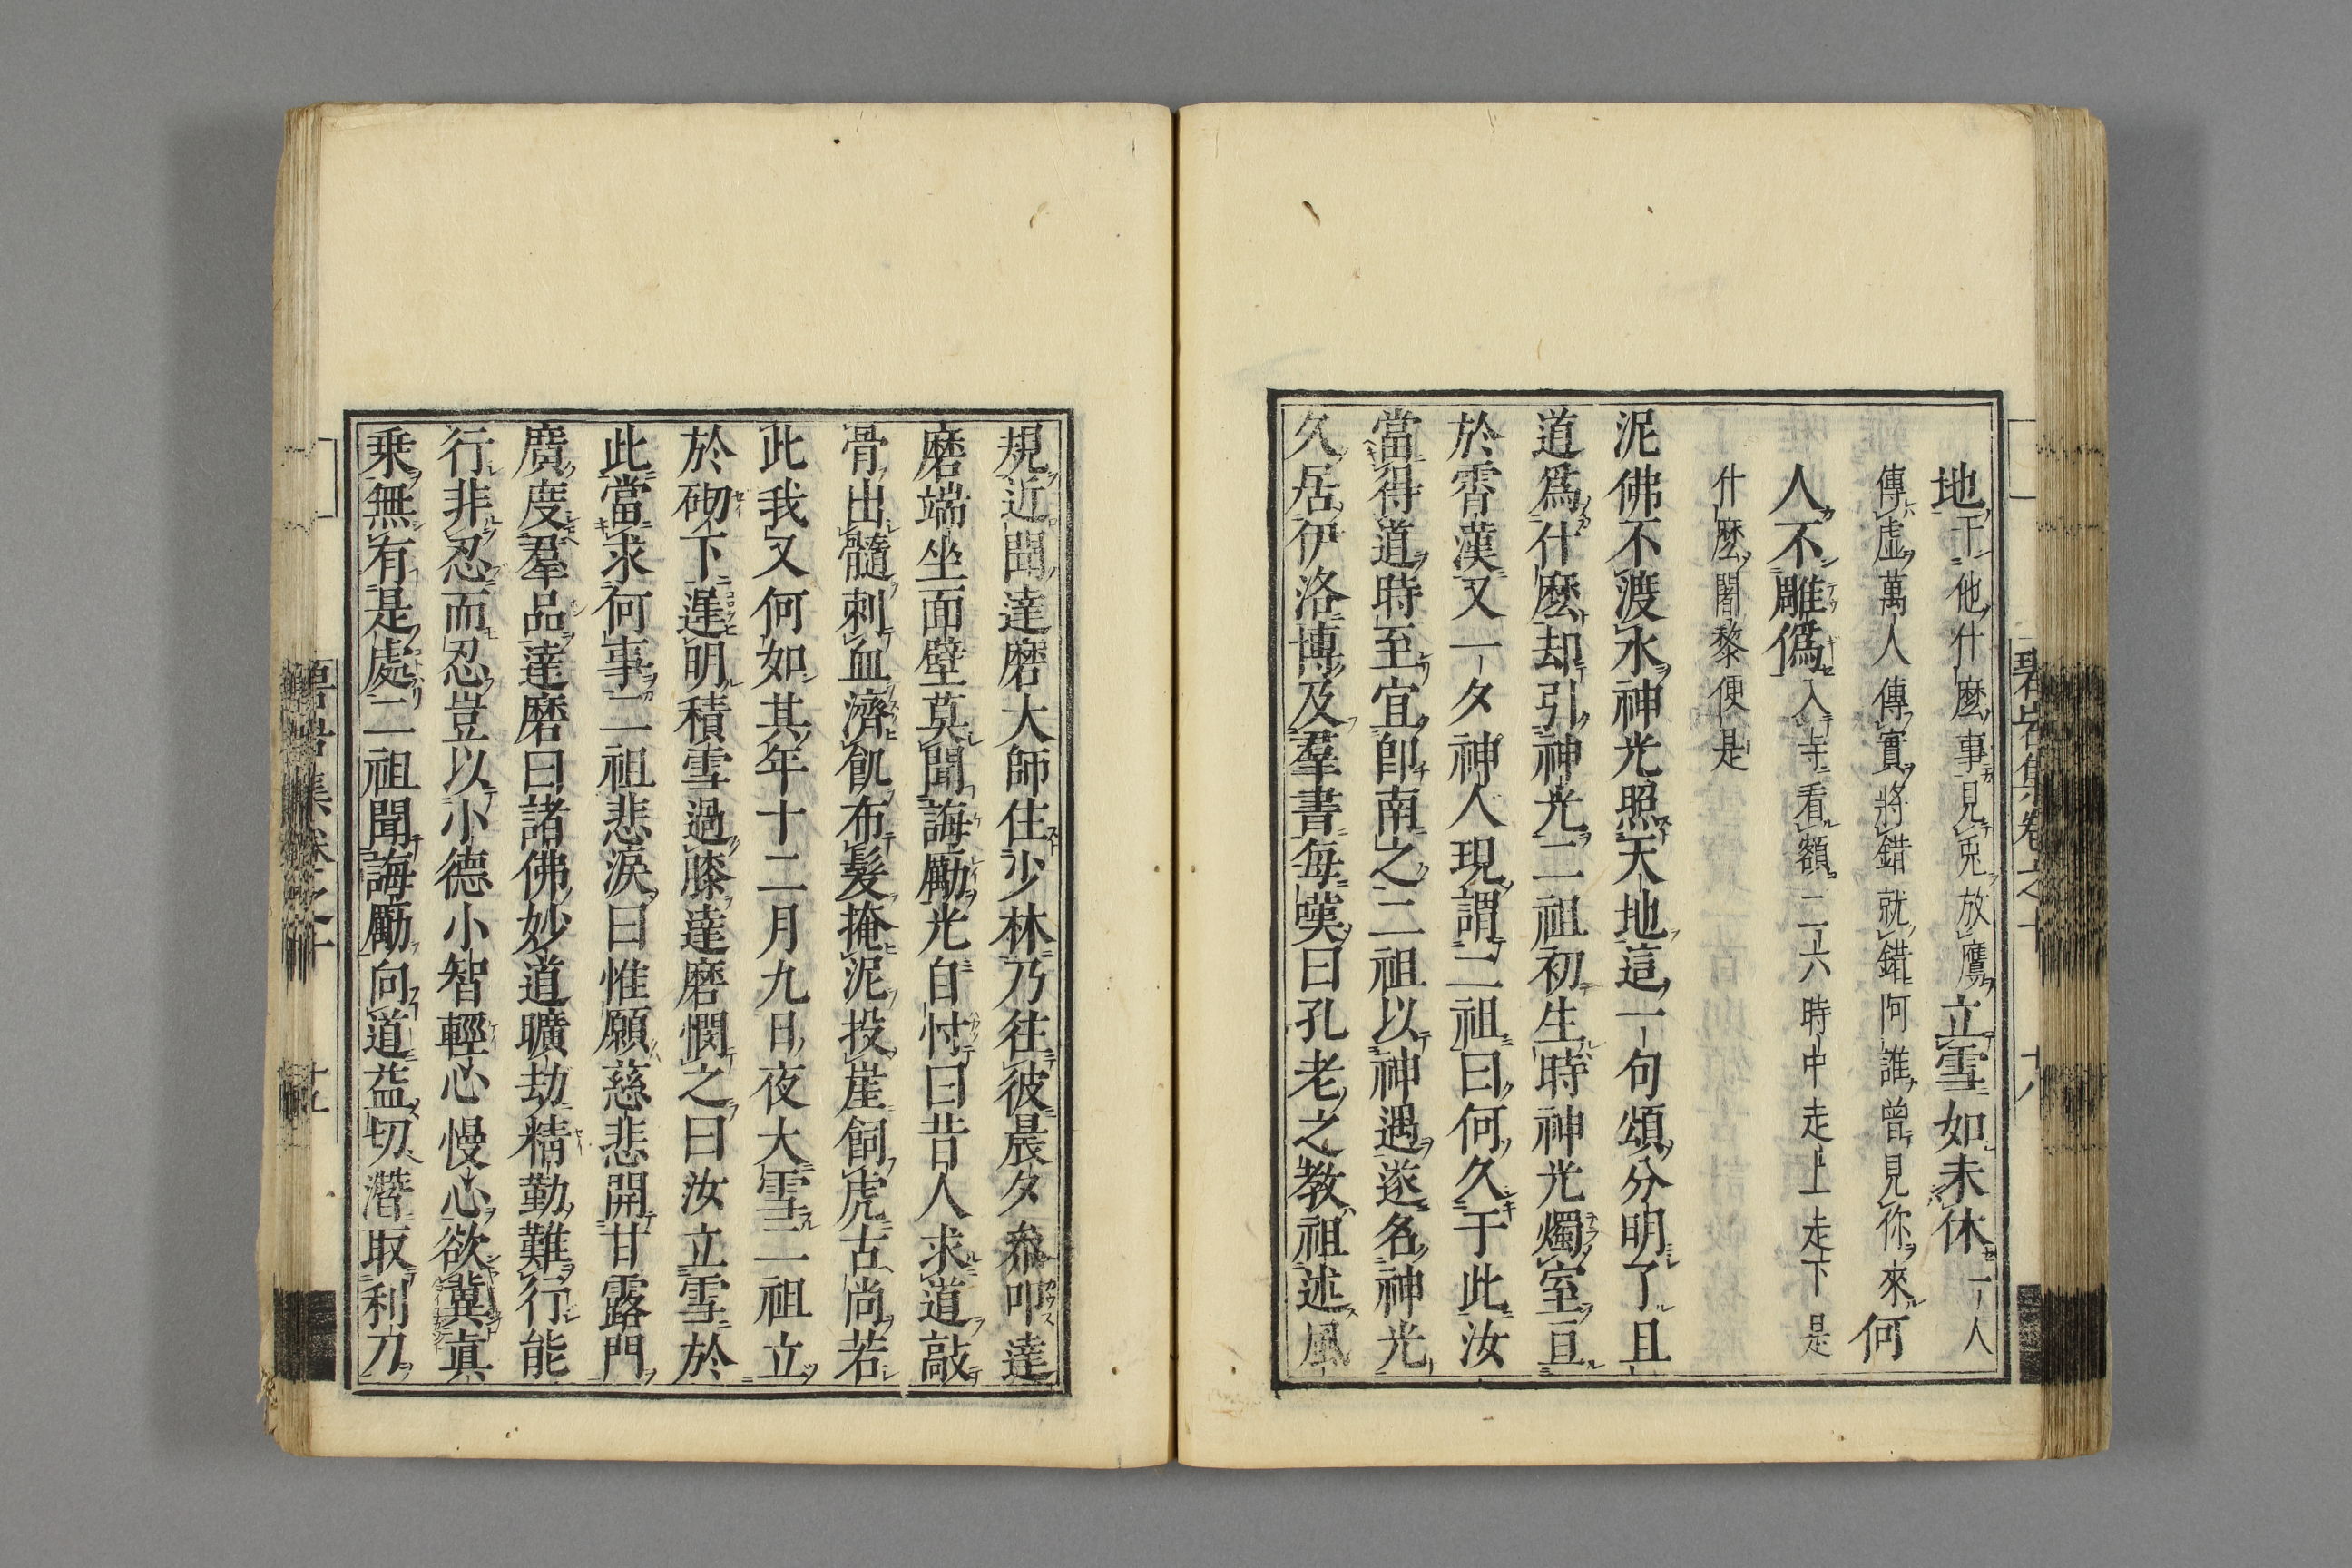 地干他什麼事見兎放鷹立雪如未休一人
傳虛萬人傳實將錯就錯阿誰曾見你來何
人不雕僞入寺看額二六時中走上走下是
什麼闍黎便是
泥佛不渡水神光照天地這一句頌分明了且
道爲什麼却引神光二祖初生時神光燭室亘
於霄漢又一夕神人現謂二祖曰何久于此汝
當得道時至宜卽南之二祖以神遇遂名神光
久居伊洛博及羣書每嘆曰孔老之教祖述風
規近聞達磨大師住少林乃往彼晨夕叅叩達
磨端坐面壁莫聞誨勵光自忖曰昔人求道敲
骨出髓刺血濟飢布髮掩泥投崖飼虎古尚若
此我又何如其年十二月九日夜大雪二祖立
於砌下遲明積雪過膝達磨憫之曰汝立雪於
此當求何事二祖悲淚曰惟願慈悲開甘露門
廣度羣品達磨曰諸佛妙道曠劫精勤難行能
行非忍而忍豈以小德小智輕心慢心欲冀眞
乗無有是處二祖聞誨勵向道益切潛取利刀
碧岩集卷之十
十八